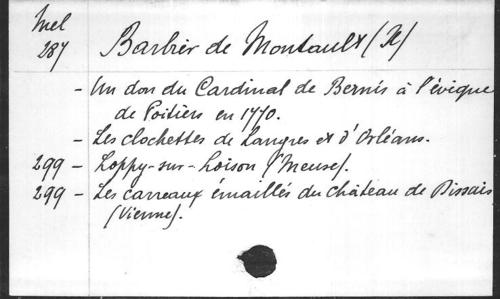 Mel
287 Barbier de Montault (X)
- Un don du Cardinal de Bernis à l'évêque
de Poitiers en 1770.
- Les clochettes de Langres et d'Orléans.
299 - Loppy-sur-Loison (Meuse).
299 - Les carreaux émaillés du château de Bissais
(Vienne).